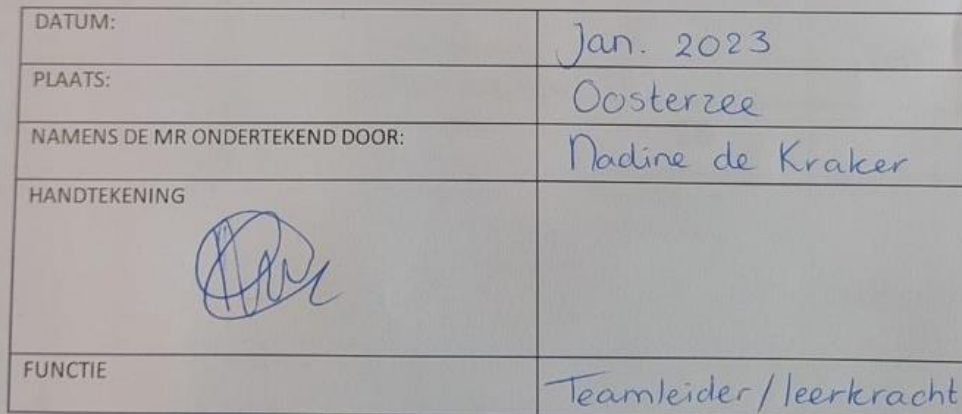 DATUM: Jan. 2023
PLAATS: Oosterzee
NAMENS DE MR ONDERTEKEND DOOR: Nadine de Kraker
HANDTEKENING
FUNCTIE Teamleider/leerkracht